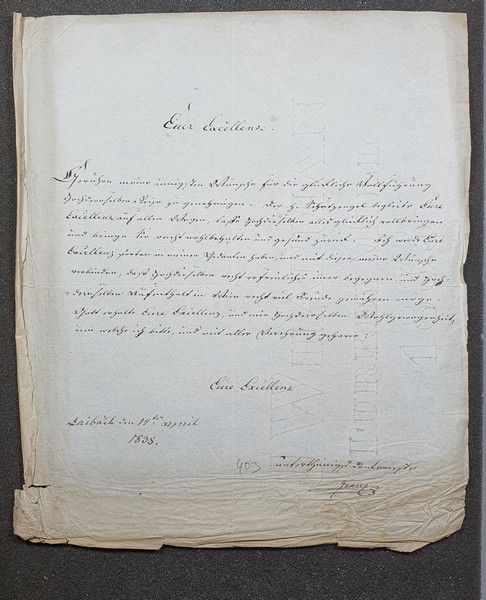 Euer Excellenz.
Geruhen meine innigsten Wünsche für die glückliche Vollführung
Hochderselben Reise zu genehmigen. Der h. Schutzengel begleite Eure
Excellenz auf allen Wegen, lasse Hochdieselben alles glücklich vollbringen
und bringe Sie recht wohlbehalten und gesund zurück. Ich werde Eure
Excellenz stets in meinen Gedanken haben, und mit diesen meine Wünsche
verbinden, daß Hochdieselben recht erfreuliches begegnen, und Hoch-
derselben Aufenthalt in Wien recht viel Freude gewähren möge.
Gott erhalte Eure Excellenz, und mir Hochderselben Wohlgewogenheit,
um welche ich bitte, und mit aller Verehrung geharre:
Eure Excellenz
Laibach den April
1838.
403 unterthänigst dankbarster
Franz